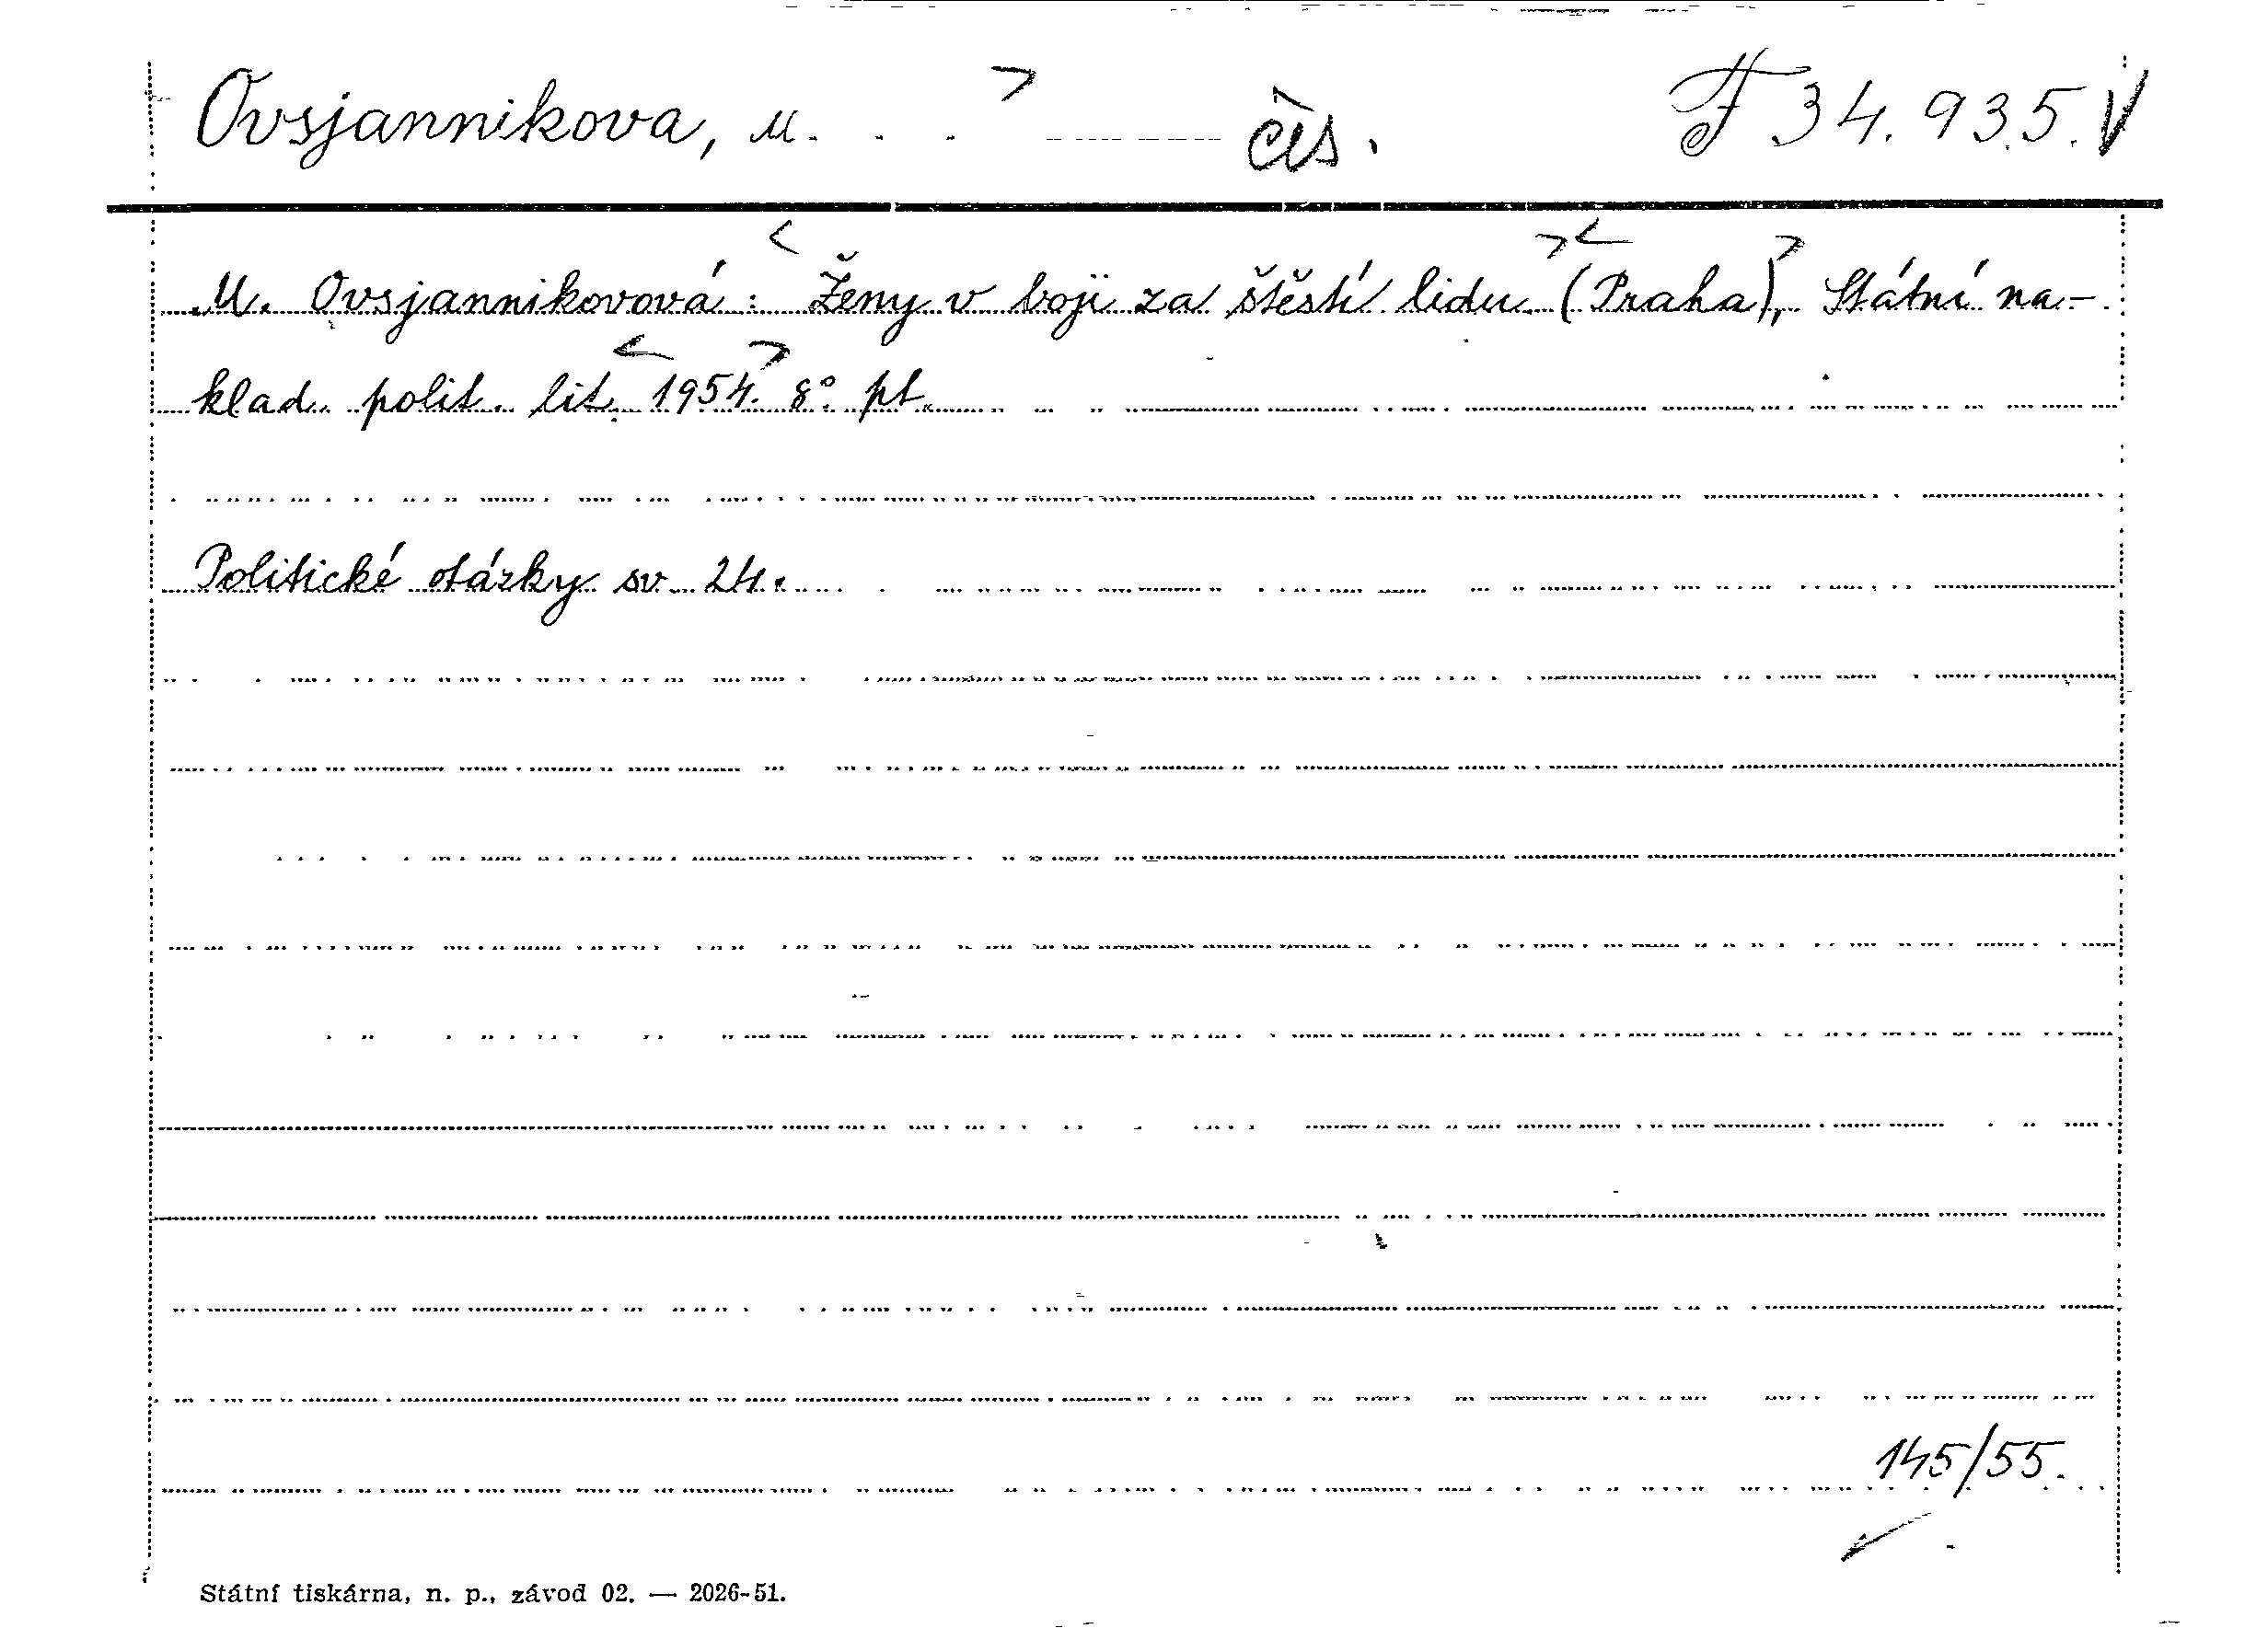 Ovsjannikova, M. . . čís. F 34.935.V
M. Ovsjannikovová: Ženy v boji za štěstí lidu. (Praha), Státní na-
klad. polit. lit. 1954. 8° pt.
Politické otázky sv. 24.
145/55.
Státní tiskárna, n. p., závod 02. — 2026-51.